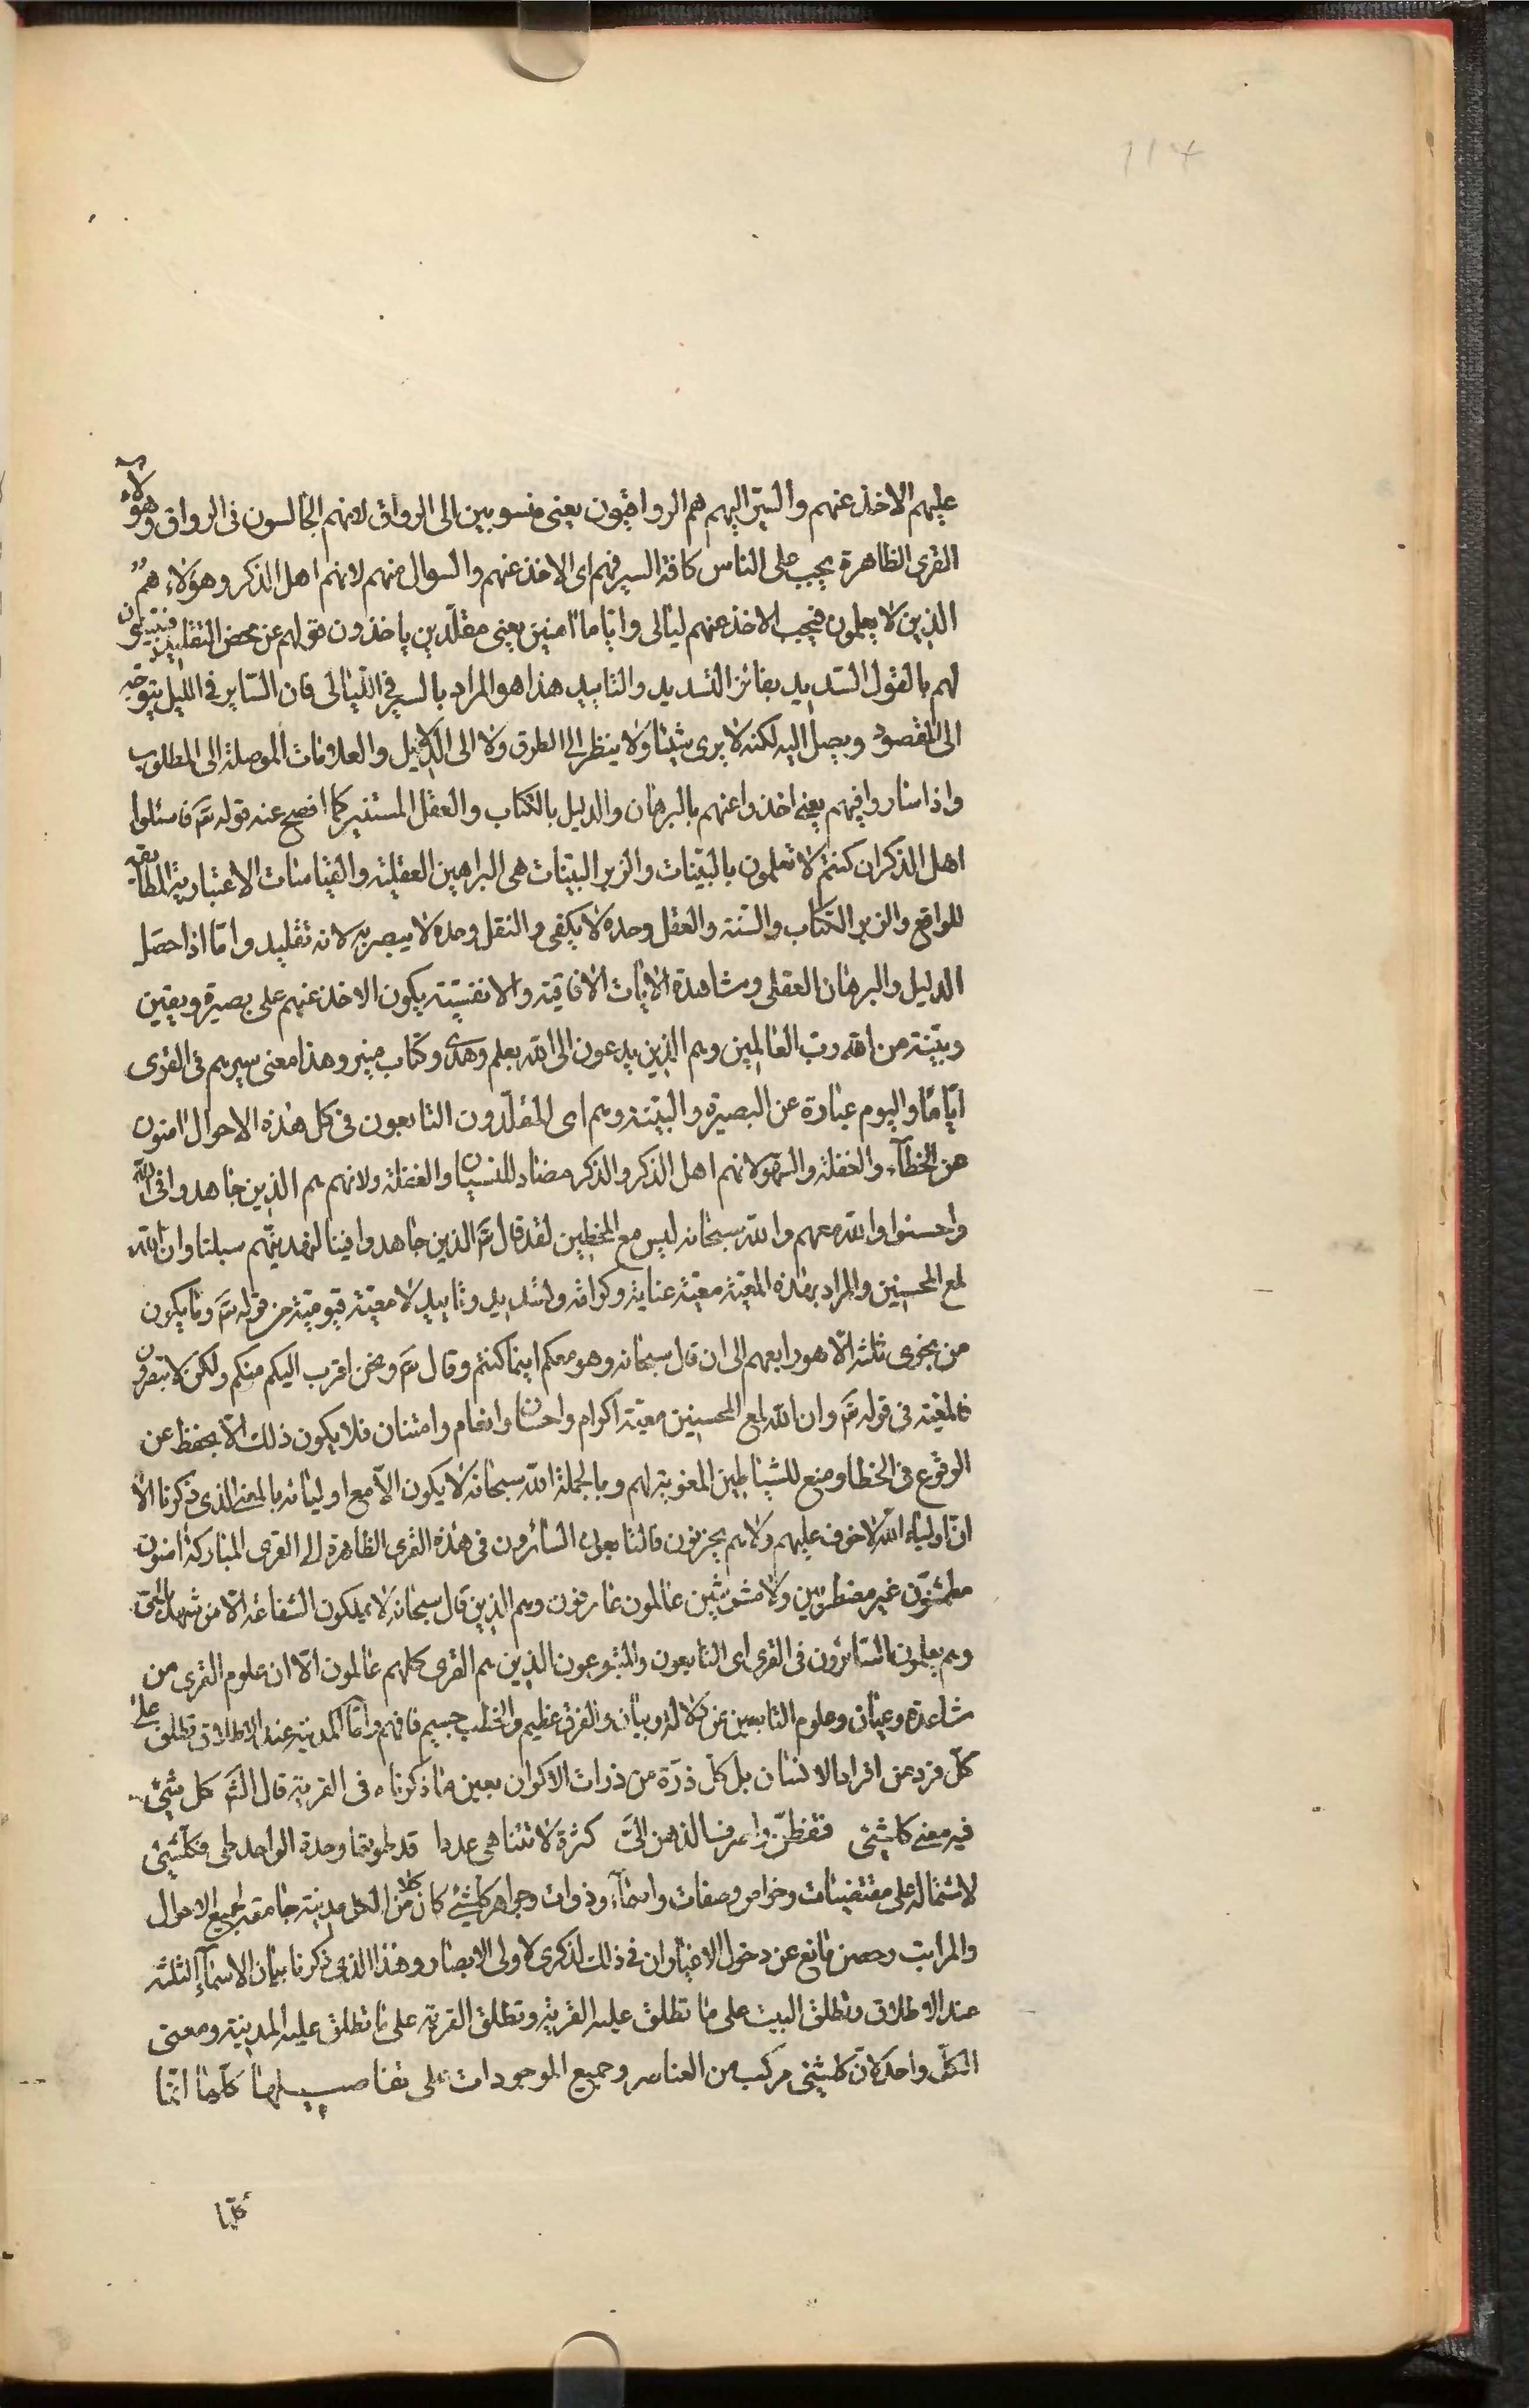 114
عليهم الاخذ عنهم والسير اليهم هم الرواقيون يعنى منسوبين الى الرواق لانهم الجالسون فى الرواق وهؤلاء
القرى الظاهرة يجب على الناس كافة السير فيهم اى الاخذ عنهم والسوال منهم لانهم اهل الذكر وهؤلاء هم
الذين لا يعلمون فيجب الاخذ عنهم ليالى واياما امنين يعنى مقلّدين ياخذون قولهم عن محض التقليد
لهم بالقول السديد بفائز التسديد والتاييد هذا هو المراد بالسير فى الليالى فان السّاير فى الليل يتوجه
الى المقصود ويصل اليه لكنه لا يرى شيئا ولا ينظر الى الطرق ولا الى الدلايل والعلامات الموصلة الى المطلوب
واذا ساروا فيهم يعنى اخذوا عنهم بالبرهان والدليل بالكتاب والعقل المستنير كما افصح عنه قوله تع فاسئلوا
اهل الذكر ان كنتم لا تعلمون بالبيّنات والزبر البيّنات هى البراهين العقلية والقياسات الاعتبارية المطابقة
للواقع والزبر الكتاب والسّنة والعقل وحده لا يكفى والنقل وحده لا يبصر به لانه تقليد وامّا اذا حصل
الدليل والبرهان العقلى ومشاهدة الايات الافاقية والانفسيّة يكون الاخذ عنهم على بصيرة ويقين
وبيّنة من الله ربّ العالمين وهم الذين يدعون الى الله بعلم وهدى وكتاب منير وهذا معنى سيرهم فى القرى
ايّامًا واليوم عبارة عن البصيرة والبيّنة وهم اى المقلّدون التابعون فى كل هذه الاحوال امنون
من الخطآء والغفلة والسّهو لانهم اهل الذكر والذكر مضاد للنسيان والغفلة ولانهم هم الذين جاهدوا فى الله
واحسنوا والله معهم والله سبحانه ليس مع المخطين لقد قال تع الذين جاهدوا فينا لنهدينّهم سبلنا وان الله
لمع المحسنين والمراد بهذه المعيّة معيّة عناية وكرامة وتسديد وتاييد لا معيّة قيّوميّة من قوله تع وما يكون
من نجوى ثلثة الّا هو رابعهم الى ان قال سبحانه وهو معكم اينما كنتم وقال تع ونحن اقرب اليكم منكم ولكن لا تبصرون
فالمعيّة فى قوله تع وان الله لمع المحسنين معيّة اكرام واحسان وانعام وامتنان فلا يكون ذلك الّا بحفظ عن
الوقوع فى الخطا ومنع للشياطين المغوية لهم وبالجملة الله سبحانه لا يكون الّا مع اوليائه بالمعنى الذى ذكرنا الا
انّ اولياء الله لا خوف عليهم ولا هم يحزنون فالتابعون السائرون فى هذه القرى الظاهرة الى القرى المباركة امنون
مطمئنّون غير مضطربين ولا مشوشين عالمون عارفون وهم الذين قال سبحانه لا يملكون الشفاعة الّا من شهد بالحق
وهم يعلمون فالسّائرون فى القرى اى التابعون والمتبوعون الذين هم القرى كلهم عالمون الّا ان علوم القرى من
مشاهدة وعيان وعلوم التابعين عن دلالة وبيان والفرق عظيم والخطب جسيم فافهم وامّا المدينة عند الاطلاق تطلق على
كلّ فرد من افراد الانسان بل كلّ ذرّة من ذرات الاكوان بعين ما ذكرناه فى القرية قال الشّاعر كل شئ
فيه معنى كلشئ فتفطّن واصرف الذهن الىّ كثرة لا تتناهى عددا قد طوتها وحدة الواحد طى فكلّشئ
لاشتماله على مقتضيات وخواص وصفات واسمآء وذوات وجواهر كلشئ كان كلا من الكل مدينة جامعة لجميع الاحوال
والمراتب وحصن مانع عن دخول الاغيار ان فى ذلك لذكرى لاولى الابصار وهذا الذى ذكرنا بيان الاسمآء الثلثة
عند الاطلاق وتطلق البيت على ما تطلق عليه القرية وتطلق القرية على ما تطلق عليه المدينة ومعنى
الكلّ واحد لان كلشئ مركب من العناصر وجميع الموجودات على تفاصيلها كلّها انّما
كلّها